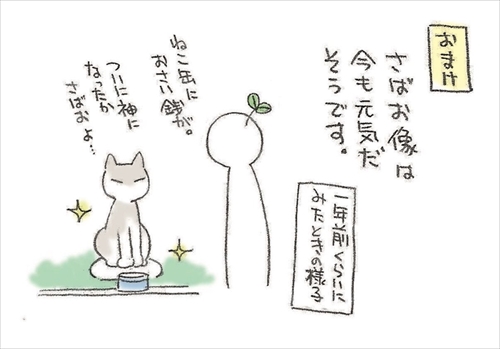 おまけ
さばお像は
今も元気だ
そうです。
一年前くらいに
みたときの様子
ねこ缶に
おさい銭が。
ついに神に
なったか
さばおよ…